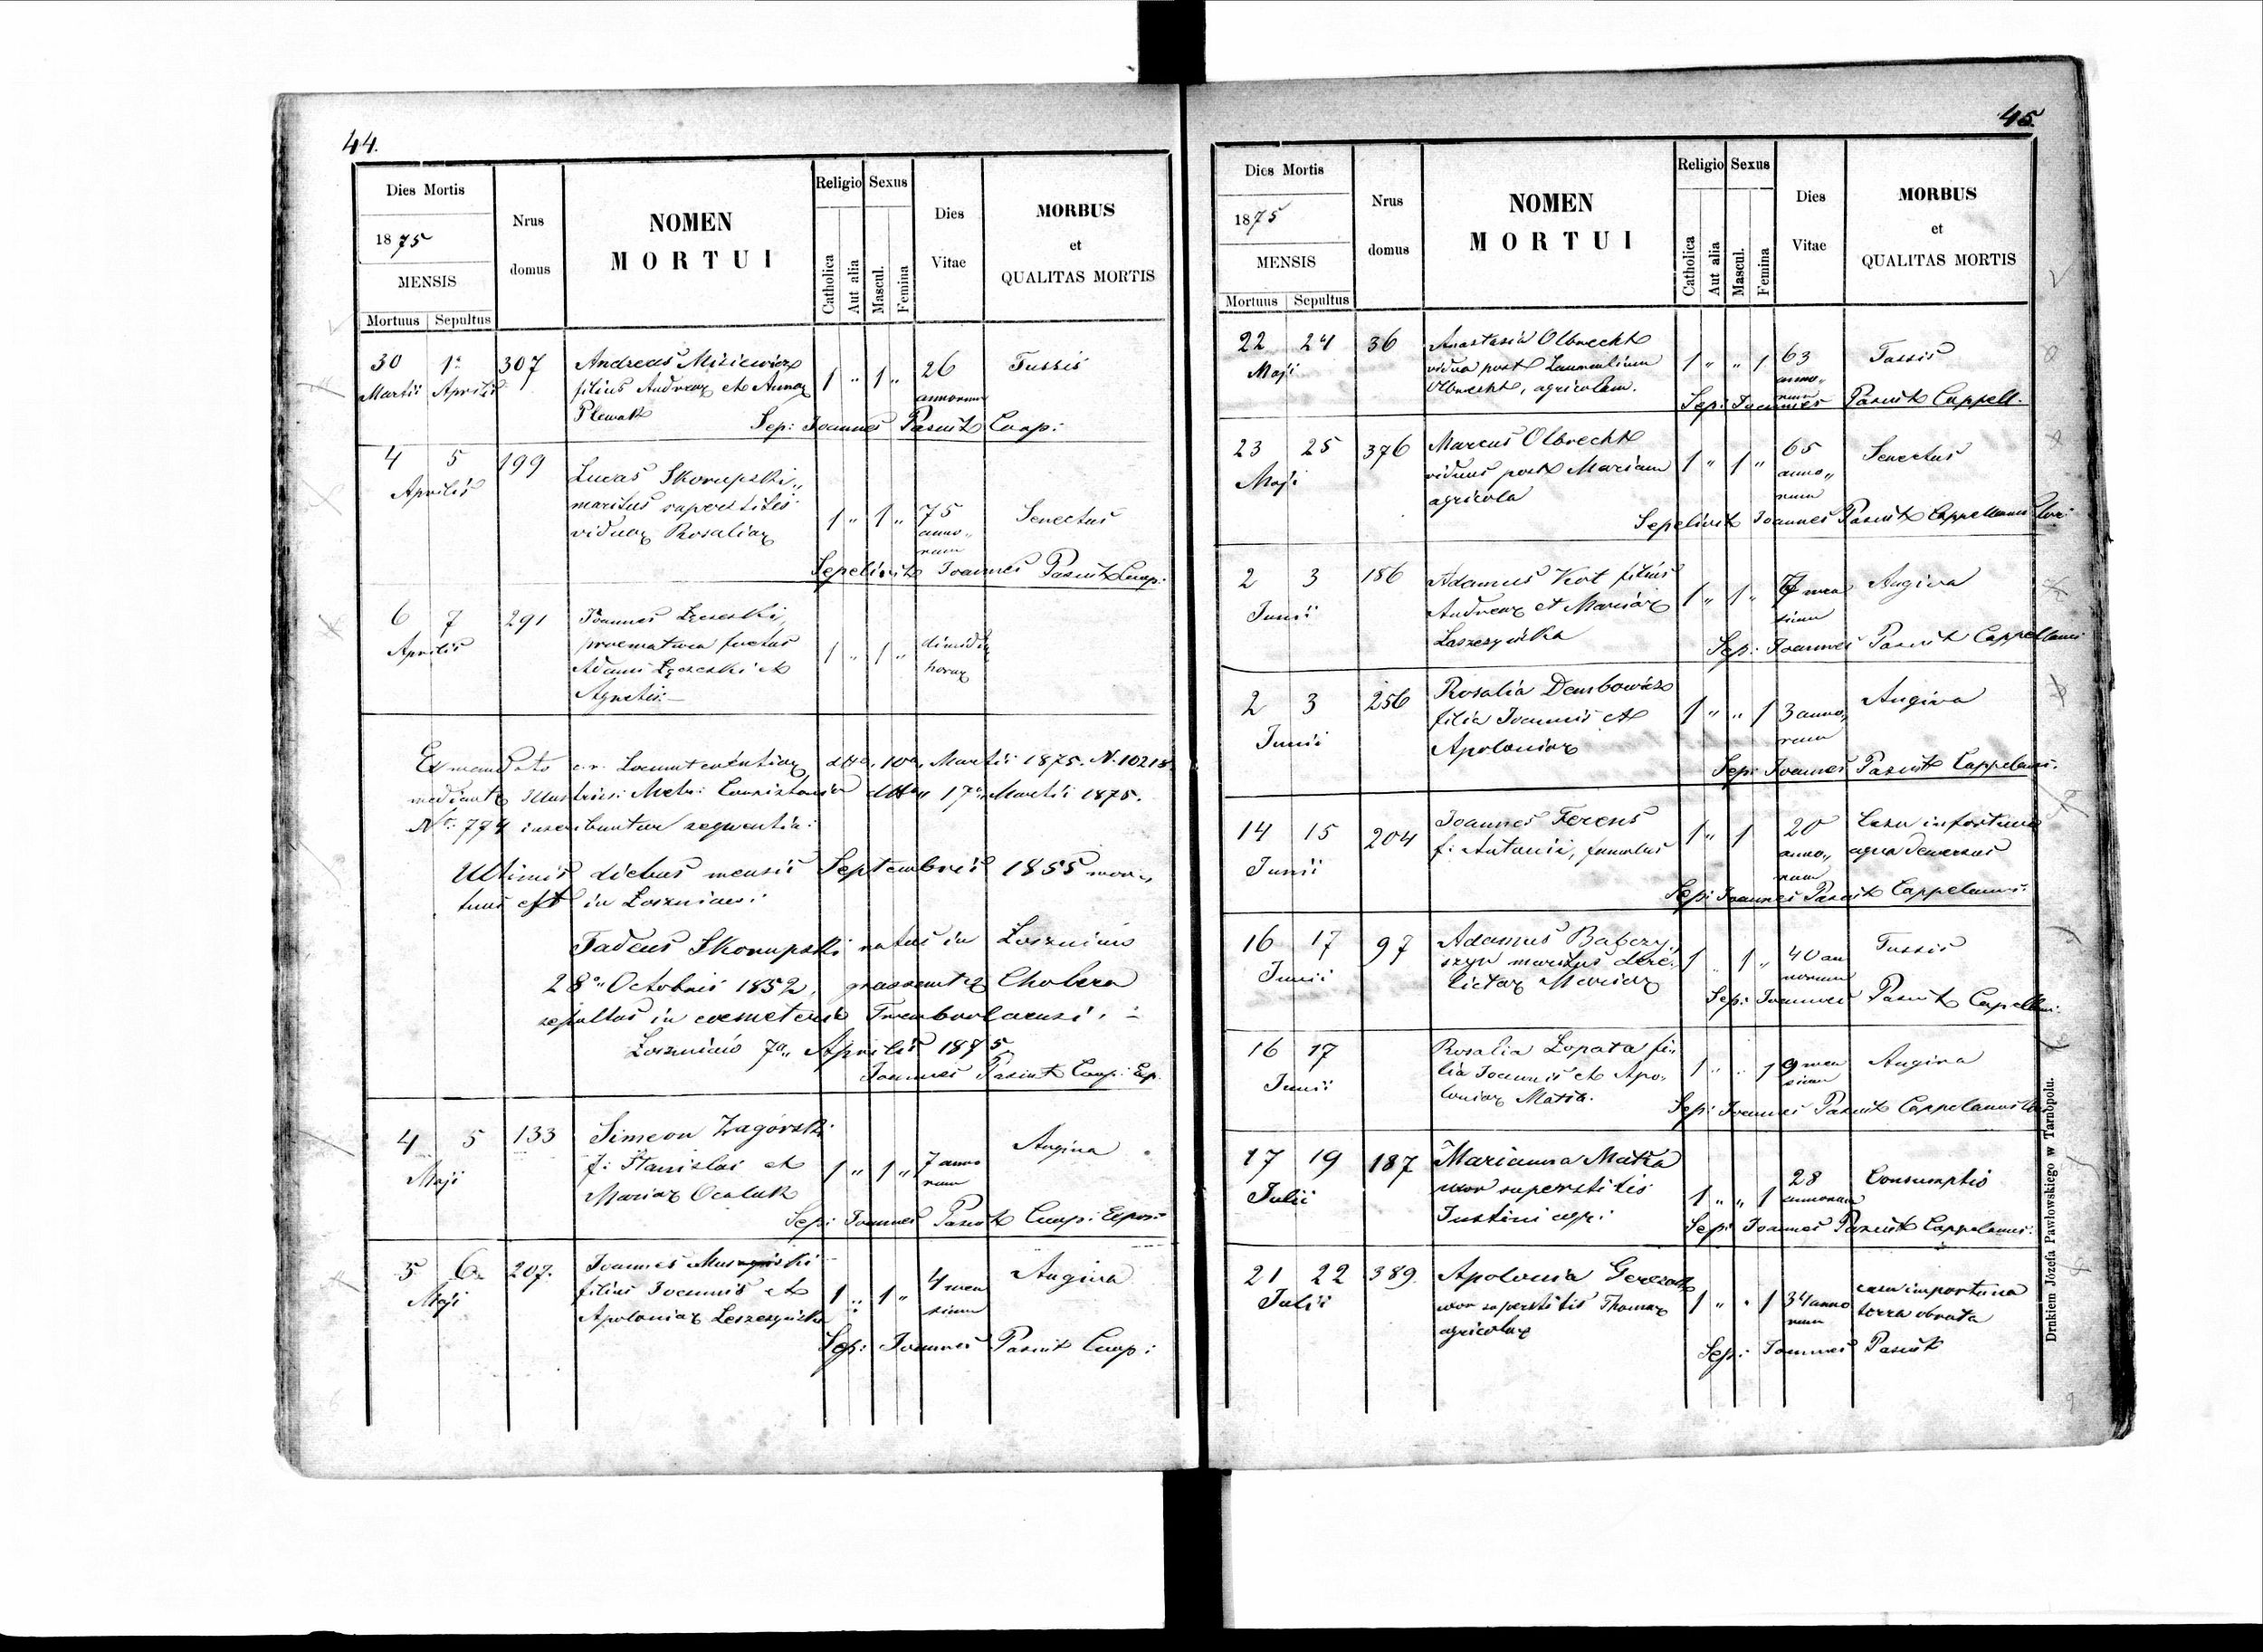 44.
Dies Mortis
1875
MENSIS
Mortuus Sepultus
Nrus domus
NOMEN
MORTUI
Religio
Catholica
Aut alia
Sexus
Mascul.
Femina
Dies
Vitae
MORBUS
et
QUALITAS MORTIS
30 1a 307 Andreas Misiewicz 26 Tussis
Martii Aprilis filius Andreae et Annae 1 " 1 " annorum
Plewak Sep: Joannes Pasiut Coop:
4 5 199 Lucas Skorupski
Aprilis maritus superstitis 1 " 1 " 75 Senectus
viduae Rosaliae anno„
rum
Sepelivit Joannes Pasiut Coop:
6 7 291 Joannes
Aprilis praematura foetus 1 " 1 " dimidiae
Adami et horae
Agnetis
Ex mandato c.r. Locumtenentiae dtto 10a Martii 1875. N. 10218
mediante Illustriss: Metr: Consistorii dtto 17a Martii 1875.
Nr: 774 inscribuntur sequentia:
Ultimis diebus mensis Septembris 1855 mor„
tuus est in Łoszniow:
Tadeus Skorupski natus in Łoszniow
28a Octobris 1852, grassante Cholera
sepultus in coemeterio Trembovlaensi.
Łoszniow 7a Aprilis 1875
Joannes Pasiut Coop: Ex.
4 5 133 Simeon Zagórski Angina
Maji f: Stanislai et 1 " 1 " 7 anno
Mariae rum
Sep: Joannes Pasiut Coop: Expos:
5 6 207. Joannes Angina
Maji filius Joannis et 1 " 1 " 4 men
Apoloniae Leszczyńska sium
Sep: Joannes Pasiut Coop:
45.
Dies Mortis
1875
MENSIS
Mortuus Sepultus
Nrus domus
NOMEN
MORTUI
Religio
Catholica
Aut alia
Sexus
Mascul.
Femina
Dies
Vitae
MORBUS
et
QUALITAS MORTIS
22 24 36 Anastasia Olbrecht
Maji vidua post Laurentium 1 " " 1 63 Tussis
Olbrecht, agricolam. anno„
rum
Sep: Joannes Pasiut Cappell.
23 25 376 Marcus Olbrecht 65 Senectus
Maji viduus post Mariam 1 " 1 " anno„
agricola rum
Sepelivit Joannes Pasiut Cappellanus
2 3 186 Adamus Kot filius Angina
Junii Andreae et Mariae 1 " 1 " men
Laszczyńska sium
Sep: Joannes Pasiut Cappellanus
2 3 256 Rosalia Dembowicz Angina
Junii filia Joannis et 1 " " 1 3 anno„
Apoloniae rum
Sep: Joannes Pasiut Cappelanus.
14 15 204 Joannes Ferens 1 " 1 20 Casu infortuna
Junii f: Antonii, famulus anno„ aqua demersus
rum
Sep: Joannes Pasiut Cappelanus.
16 17 97 Adamus Babczy„ Tussis
Junii szyn maritus dere„ 1 " 1 " 40 an
lictae Mariae norum
Sep: Joannes Pasiut Capellan:
16 17 Rosalia Łopata fi„
Junii lia Joannis et Apo„ 1 " " 1 9 men Angina
loniae Matla. sium
Sep: Joannes Pasiut Cappelanus
17 19 187 Marianna Matla 28 Consumptio
Julii uxor superstitis 1 " " 1 annorum
Justini agr:
Sep: Joannes Pasiut Cappelanus.
21 22 389. Apolonia casu importuna
Julii uxor superstitis Thomae 1 " " 1 34 anno terra obruta
agricolae rum
Sep: Joannes Pasiut
Drukiem Józefa Pawłowskiego w Tarnopolu.